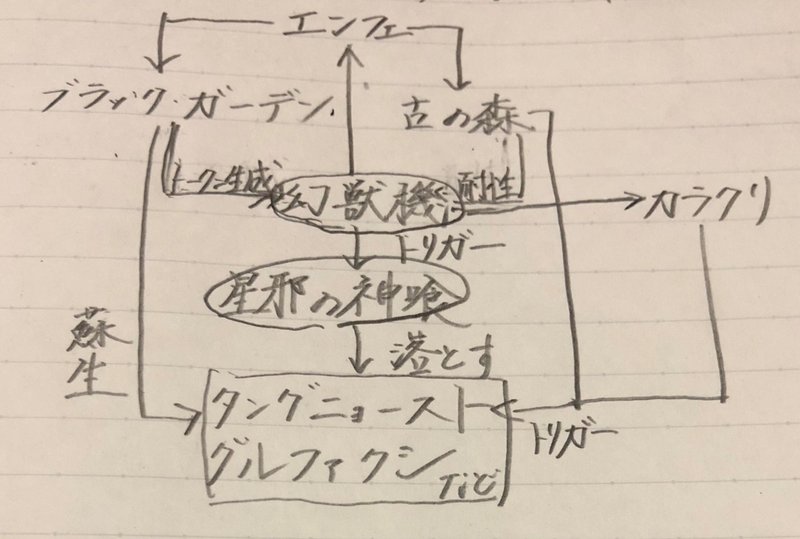 エンフェ
ブラック・ガーデン
古の森
トークン生成
幻獣機
耐性
カラクリ
トリガー
星邪の神喰
蘇生
落とす
タングニョースト
グルファクシ
など
トリガー